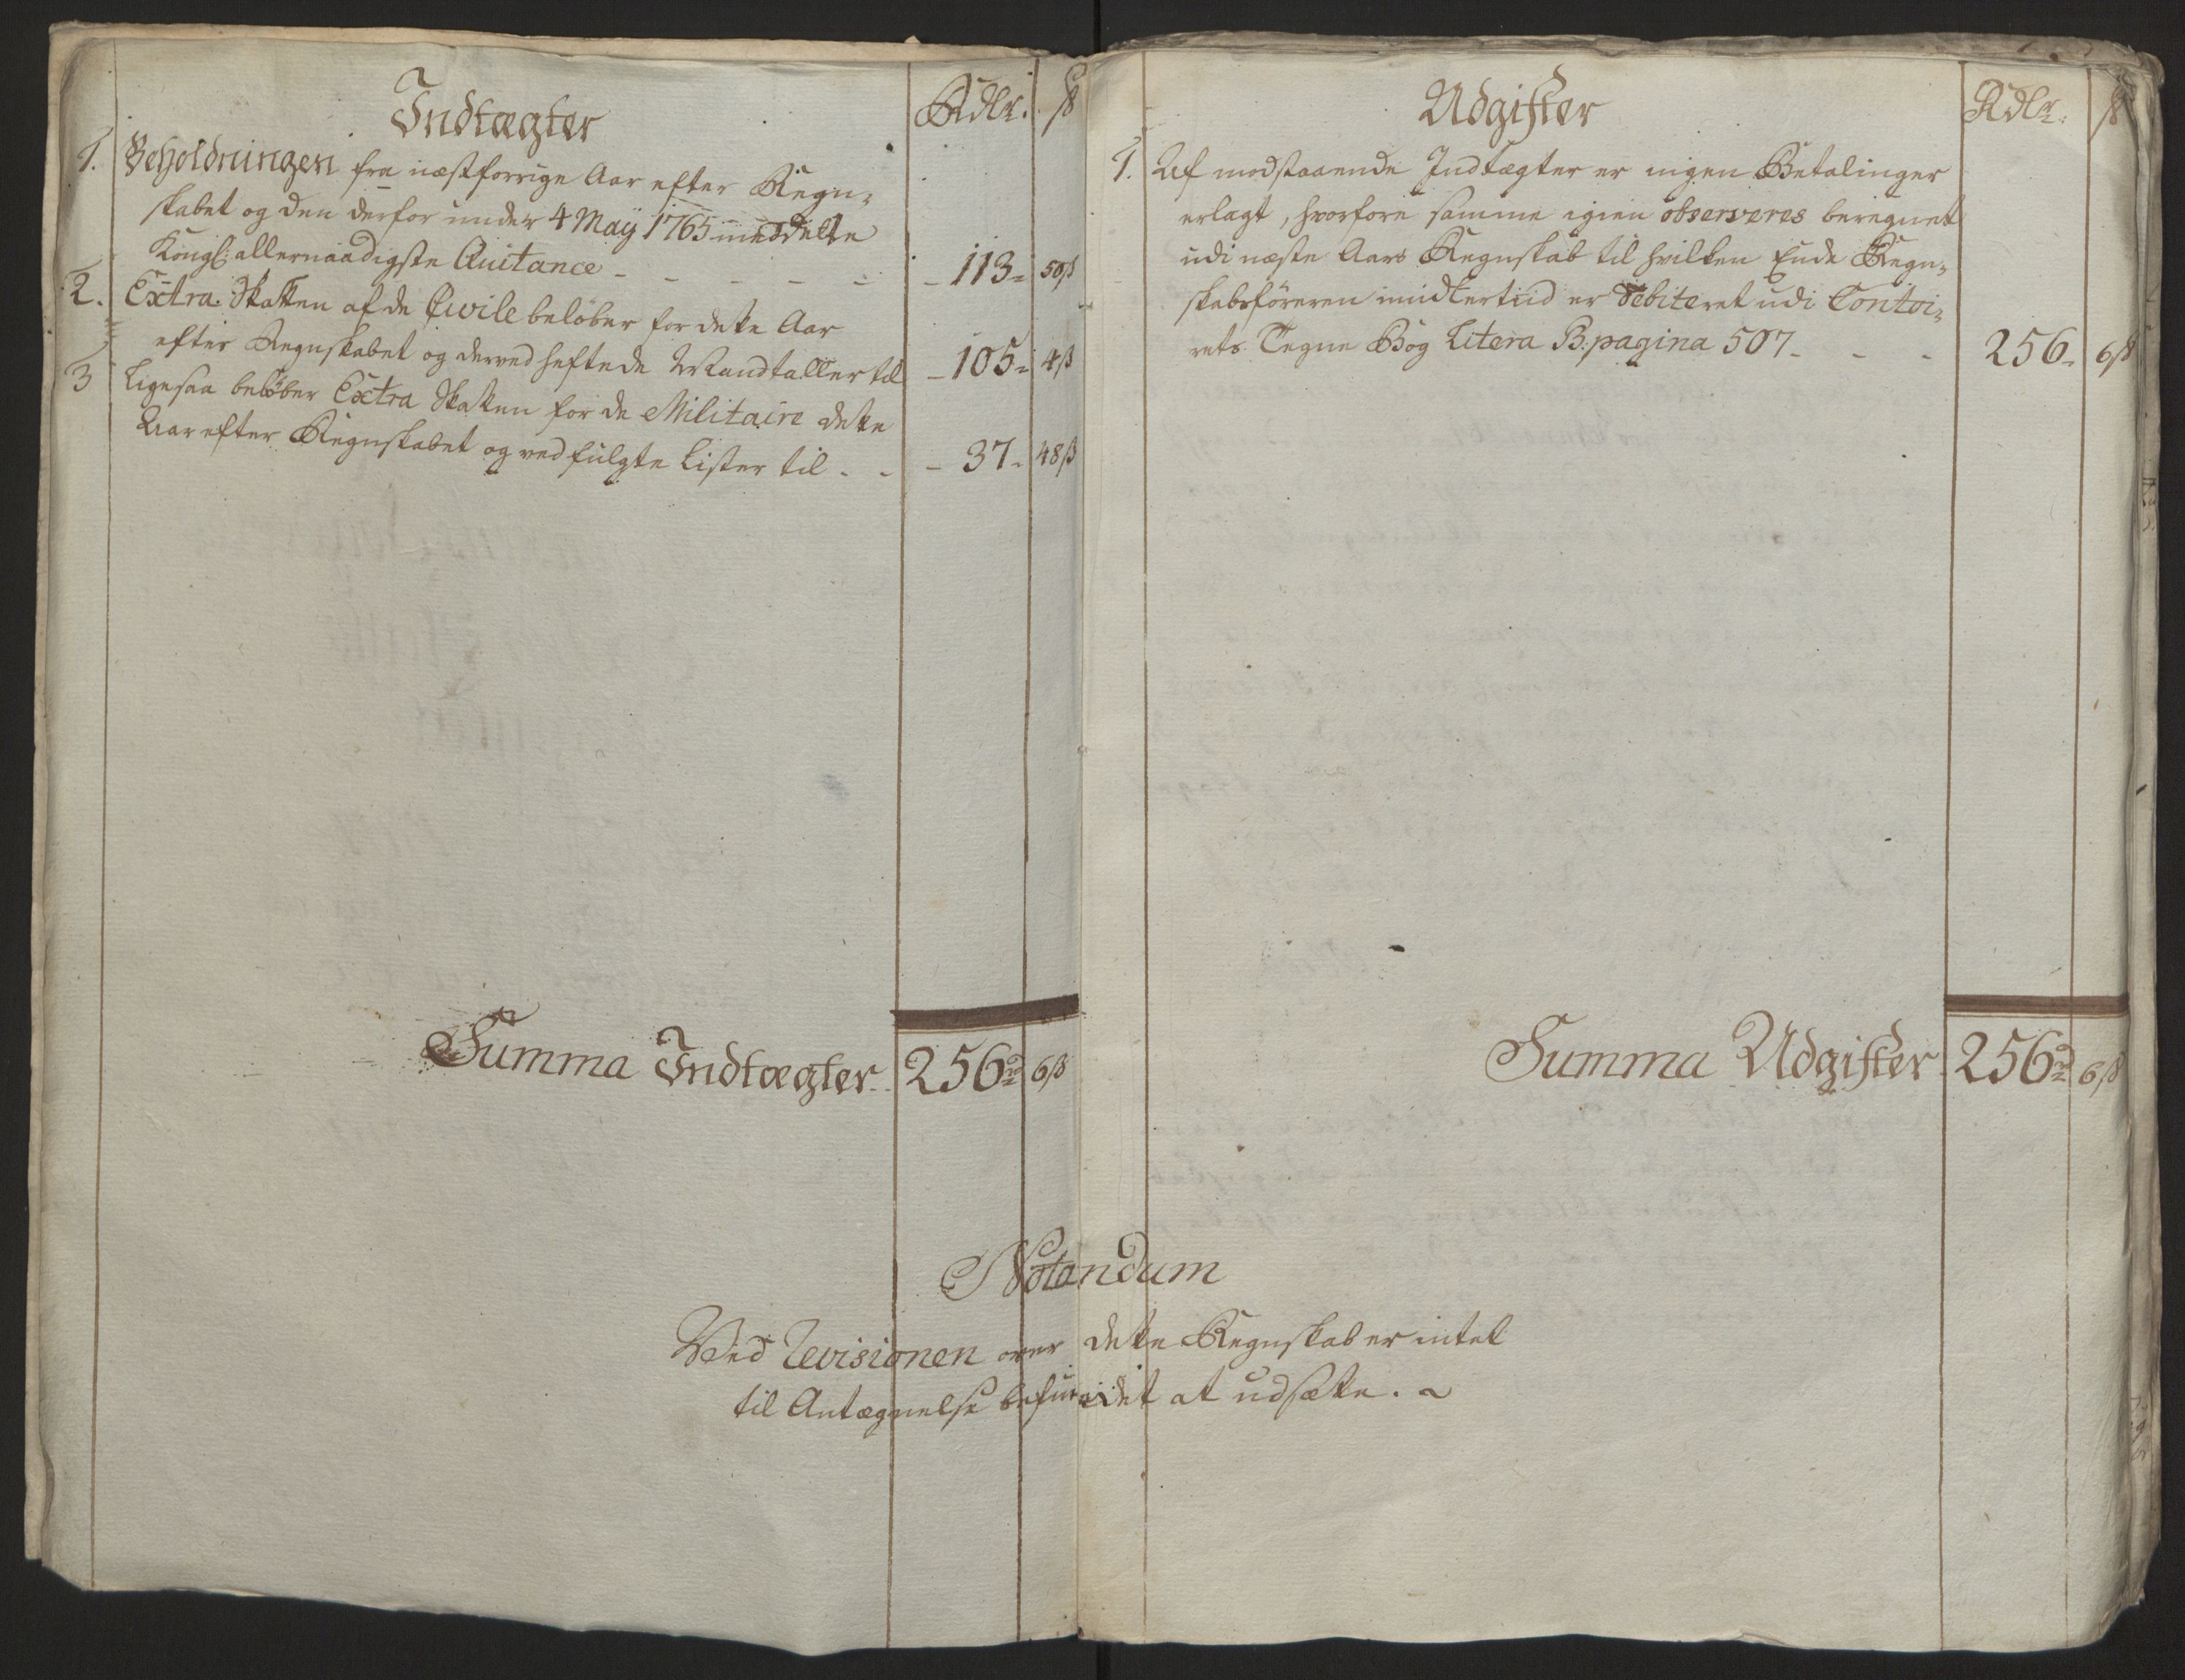 Indtægter
Rdlr. ß
1. Beholdningen fra næstforrige Aar efter Regn-
skabet og den derfor under 4 Maÿ 1765 meddelte
Kongl: allernaadigste Quitance - - - - - - 113- 50ß
2. Extra Skatten af de Civile beløber for dette Aar
efter Regnskabet og derved heftede Mandtaller til - 105- 4ß
3 Ligesaa beløber Extra Skatten for de Militaire dette
Aar efter Regnskabet og vedfulgte Lister til - - - 37- 48ß
Summa Indtægter 256rd 6ß
Udgifter
Rdlr. ß
1. Af modstaaende Indtægter er ingen Betalinger
erlagt, hvorfore samme igien observeres beregnet
udi næste Aars Regnskab til hvilken Ende Regn-
skabsföreren imidlertiid er Debiteret udi Contoi-
rets Tegne Bog Litera B: pagina 507 - - - 256- 6ß
Summa Udgifter 256rd 6ß
Notandum
Ved Revisionen over dette Regnskab er intet
til Antægnelse befundet at udsætte.